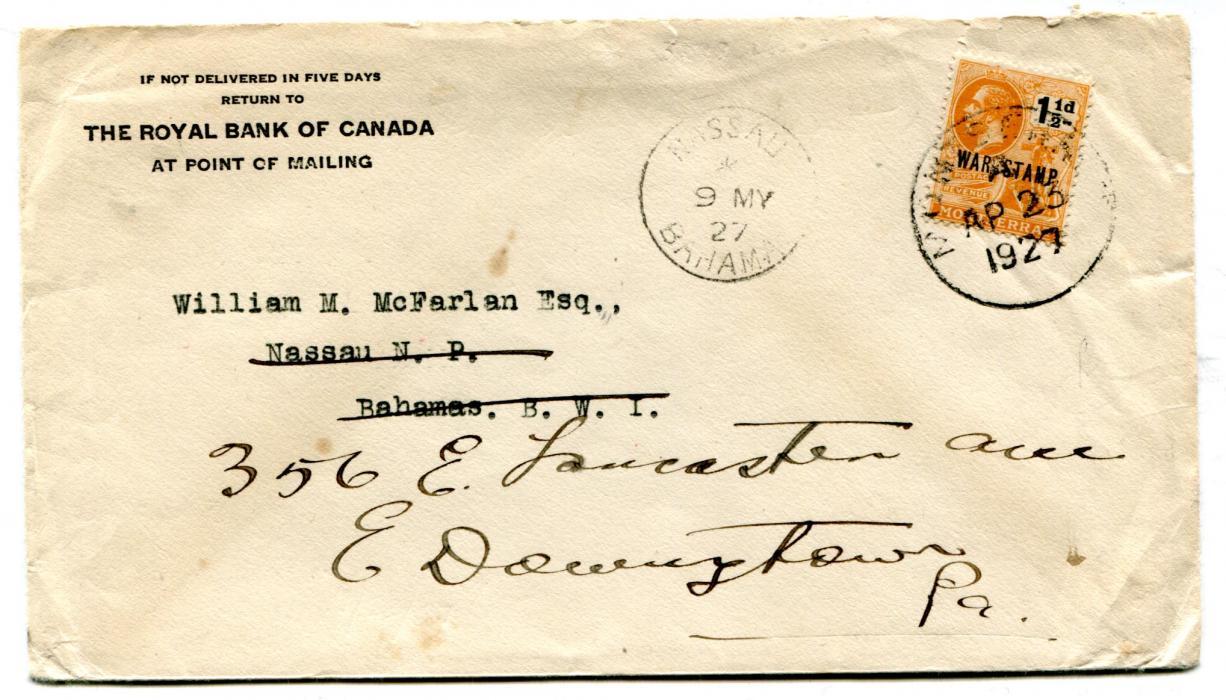 IF NOT DELIVERED IN FIVE DAYS
RETURN TO
THE ROYAL BANK OF CANADA
AT POINT OF MAILING
NASSAU
*
9 MY
27
BAHAMA
1½d
WAR STAMP
POSTAGE
REVENUE
MONTSERRAT
AP 23
1927
William M. McFarlan Esq.,
Nassau N. P.
Bahamas. B. W. I.
356 E. Lancaster Ave
E Downingtown
Pa.